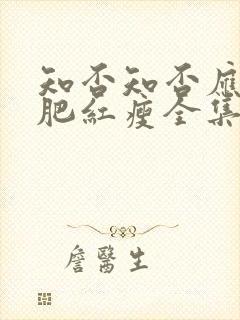 知否知否應
肥紅瘦全集
詹醫生